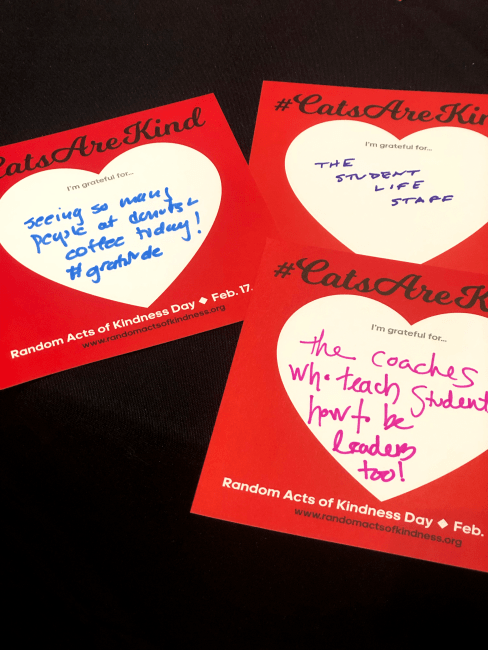 CatsAreKind
I'm grateful for...
seeing so many
people at donuts &
coffee today!
#gratitude
Random Acts of Kindness Day ◆ Feb. 17
www.randomactsofkindness.org
#CatsAreKin
I'm grateful for...
THE
STUDENT
LIFE
STAFF
#CatsAreK
I'm grateful for...
the coaches
who teach student
how to be
leaders
too!
Random Acts of Kindness Day ◆ Feb.
www.randomactsofkindness.org